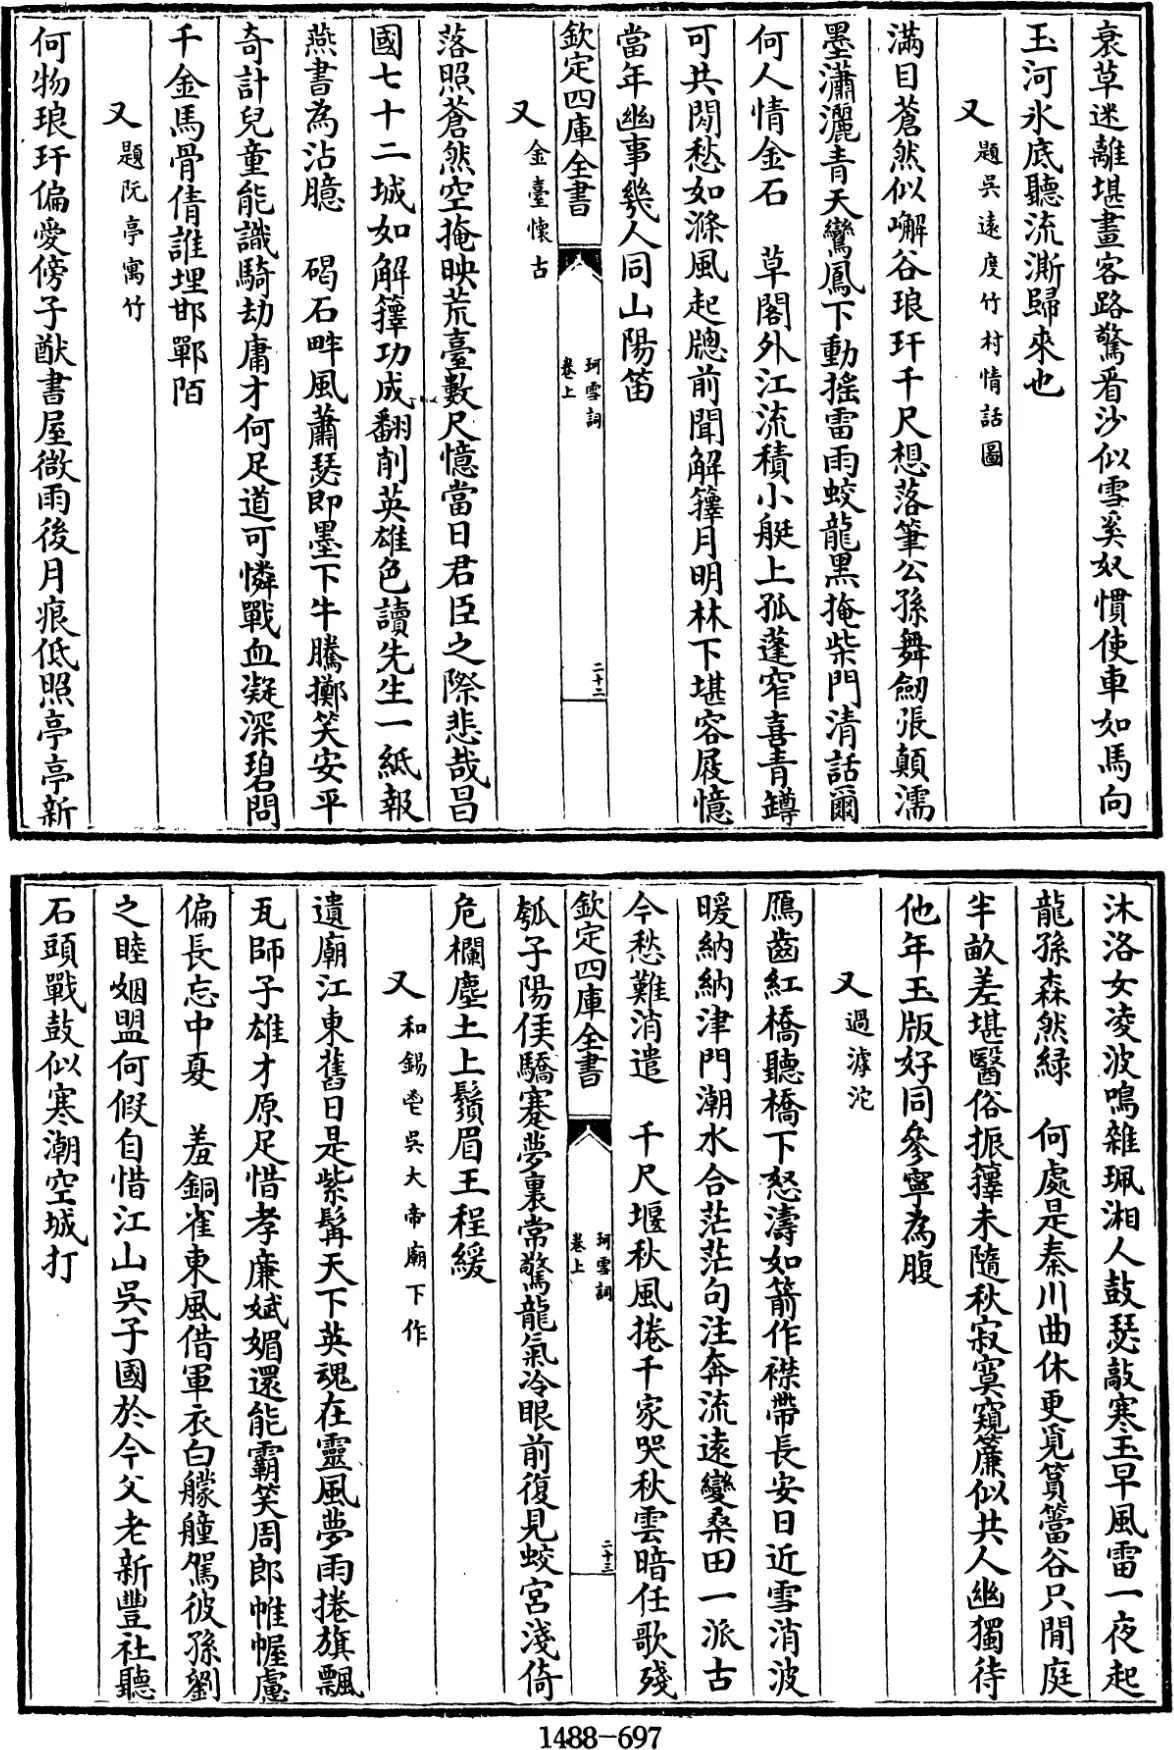 衰草迷離堪畫客路驚看沙似雪奚奴慣使車如馬向
玉河氷底聽流澌歸來也
又 題吳遠度竹村情話圖
滿目蒼然似嶰谷琅玕千尺想落筆公孫舞劒張顛濡
墨瀟灑青天鸞鳳下動搖雷雨蛟龍黑掩柴門清話爾
何人情金石 草閣外江流積小艇上孤蓬窄喜青罇
可共閒愁如滌風起牎前聞解籜月明林下堪容屐憶
當年幽事幾人同山陽笛
欽定四庫全書
珂雪詞
卷上
二十二
又 金臺懷古
落照蒼然空掩映荒臺數尺憶當日君臣之際悲哉昌
國七十二城如解籜功成翻削英雄色讀先生一紙報
燕書為沾臆 碣石畔風蕭瑟即墨下牛騰擲笑安平
奇計兒童能識騎劫庸才何足道可憐戰血凝深碧問
千金馬骨倩誰埋邯鄲陌
又 題阮亭寓竹
何物琅玕偏愛傍子猷書屋微雨後月痕低照亭亭新
沐洛女凌波鳴雜珮湘人鼓瑟敲寒玉早風雷一夜起
龍孫森然緑 何處是秦川曲休更覓篔簹谷只閒庭
半畝差堪醫俗振籜未隨秋寂寞窺簾似共人幽獨待
他年玉版好同參寧為腹
又 過滹沱
鴈齒紅橋聽橋下怒濤如箭作襟帶長安日近雪消波
暖納納津門潮水合茫茫句注奔流遠變桑田一派古
今愁難消遣 千尺堰秋風捲千家哭秋雲暗任歌殘
欽定四庫全書
珂雪詞
卷上
二十三
瓠子陽侯驕蹇夢裏常驚龍氣冷眼前復見蛟宮淺倚
危欄塵土上鬚眉王程緩
又 和錫鬯吳大帝廟下作
遺廟江東舊日是紫髯天下英魂在靈風夢雨捲旗飄
瓦師子雄才原足惜孝廉娬媚還能霸笑周郎帷幄慮
偏長忘中夏 羞銅雀東風借軍衣白艨艟駕彼孫劉
之睦姻盟何假自惜江山吳子國於今父老新豐社聽
石頭戰鼓似寒潮空城打
1488-697